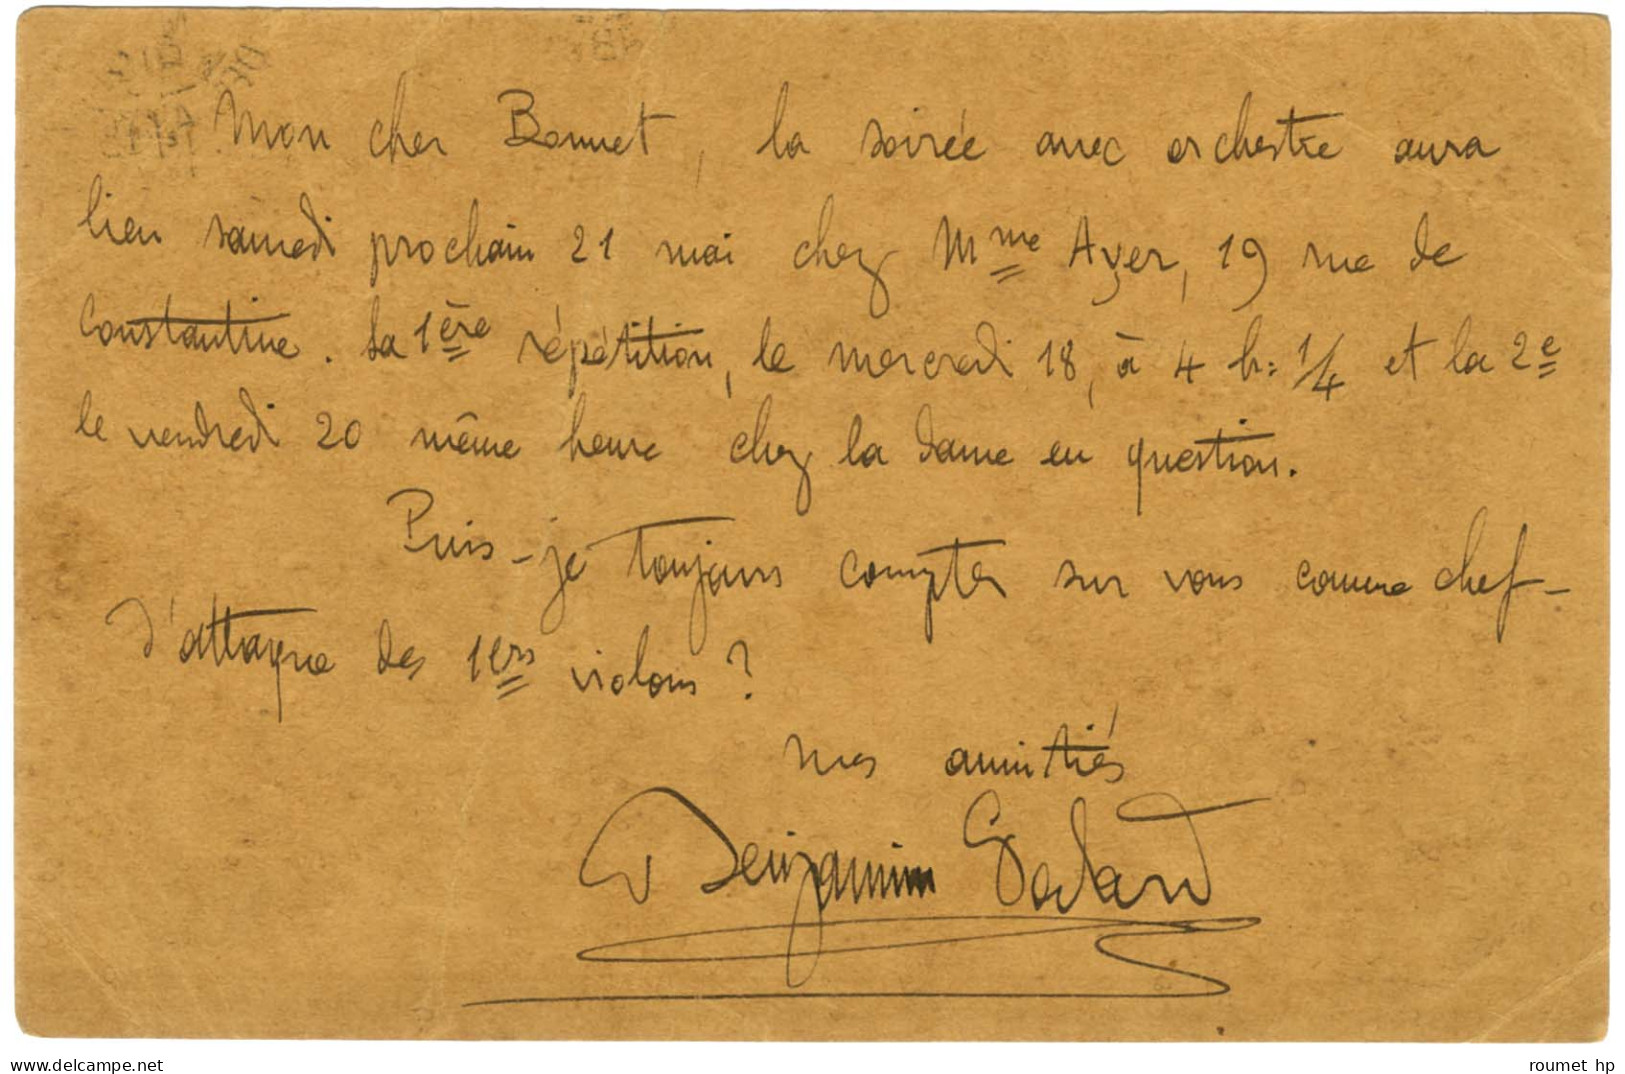 Mon cher Bonnet, la soirée avec orchestre aura
lieu samedi prochain 21 mai chez Mme Ayer, 19 rue de
Constantine. La 1ère répétition, le mercredi 18, à 4 h: 1/4 et la 2e
le vendredi 20 même heure chez la dame en question.
Puis-je toujours compter sur vous comme chef-
d'attaque des 1ers violons?
mes amitiés
Benjamin Godard
delcampe.net
roumet hp